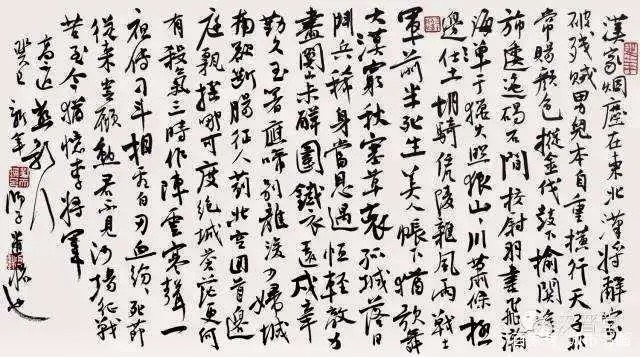 漢家烟塵在東北漢將辭家
破殘賊男兒本自重橫行天子非
常賜顏色摐金伐鼓下榆關旌
旆逶迤碣石間校尉羽書飛瀚
海單于獵火照狼山山川蕭條極
邊土胡騎憑陵雜風雨戰士
軍前半死生美人帳下猶歌舞
大漠窮秋塞草衰孤城落日
鬥兵稀身當恩遇恒輕敵力
盡關山未解圍鐵衣遠戍辛
勤久玉箸應啼別離後少婦城
南欲斷腸征人薊北空回首邊
庭飄搖那可度絕域蒼茫更何
有殺氣三時作陣雲寒聲一
夜傳刁斗相看白刃血紛紛死節
從來豈顧勳君不見沙場征戰
苦至今猶憶李將軍
高適燕歌行
癸巳新年